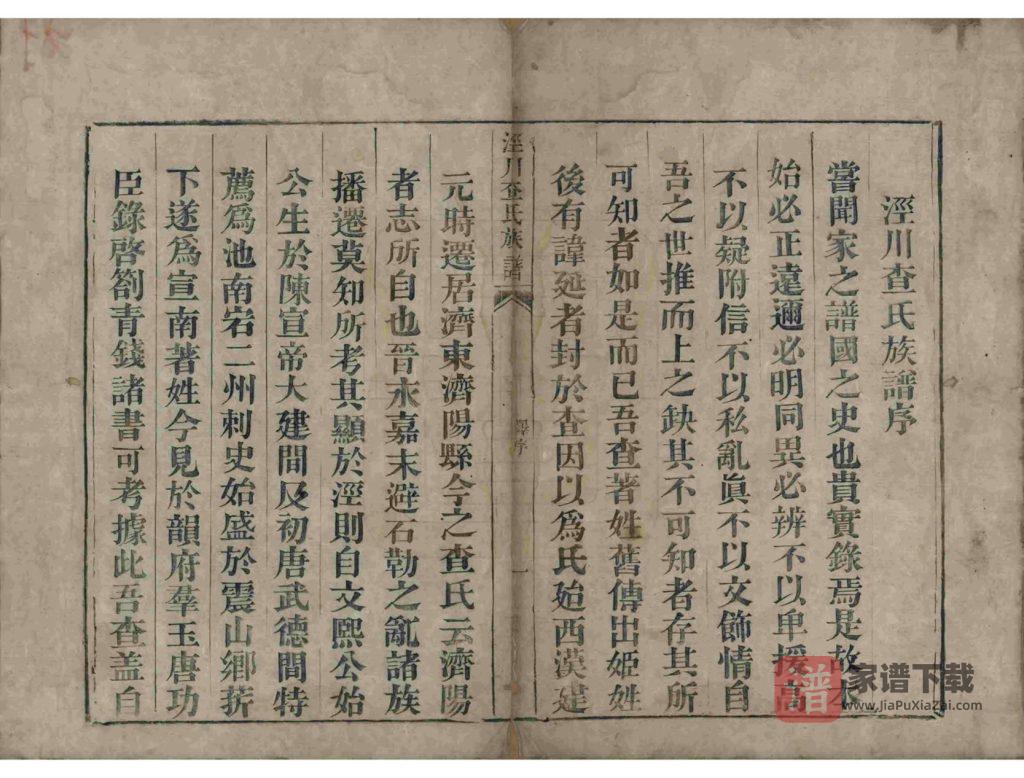 涇川查氏族譜序
嘗聞家之譜國之史也貴實錄焉是故本
始必正遠邇必明同異必辨不以卑援高
不以疑附信不以私亂眞不以文飾情自
吾之世推而上之缺其不可知者存其所
可知者如是而已吾查著姓舊傳出姬姓
後有諱延者封於查因以爲氏始西漢建
涇川查氏族譜
序
一
元時遷居濟東濟陽縣今之查氏云濟陽
者志所自也晉永嘉末避石勒之亂諸族
播遷莫知所考其顯於涇則自文熙公始
公生於陳宣帝大建間及初唐武德間特
薦爲池南宕二州刺史始盛於震山鄉菥
下遂爲宣南著姓今見於韻府羣玉唐功
臣錄啓劄青錢諸書可考據此吾查盖自
譜
家谱下载
www.JiaPuXiaZai.com